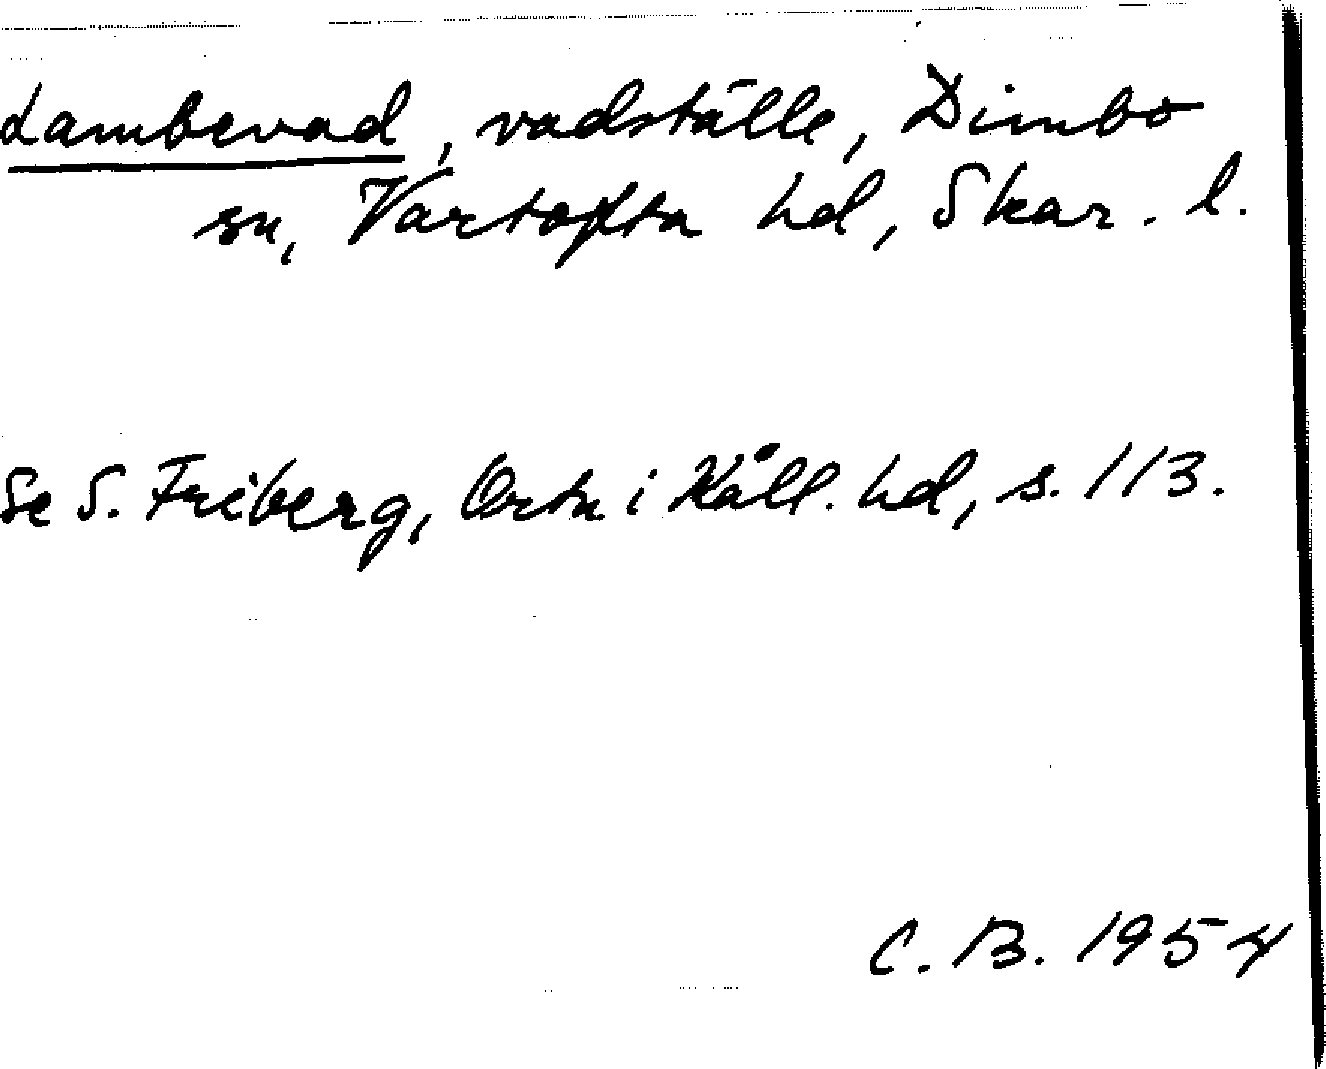 Lambevad, vadställe, Dimbo
sn, Vartofta hd, Skar. l.
Se S. Friberg, Ortn i Kåll. hd, s. 113.
C. B. 1954